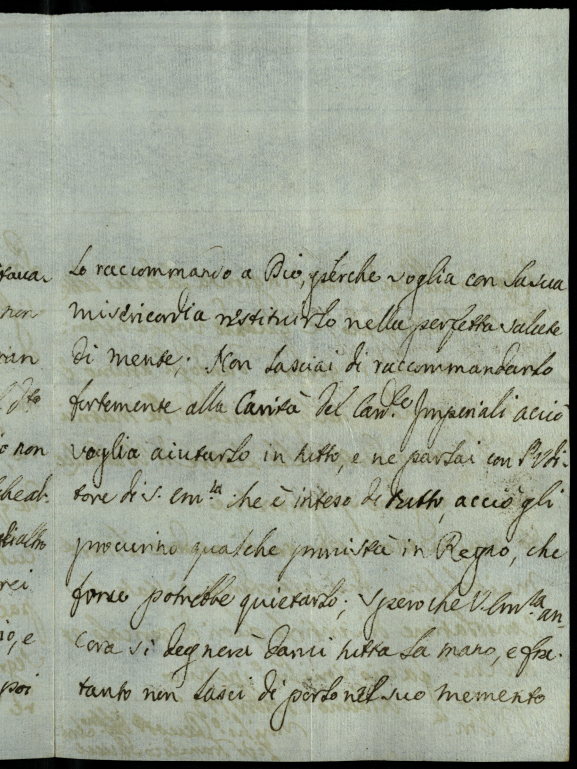 Lo raccommando a Dio, perche voglia con la sua
misericordia restituirlo nella perfetta salute
di mente; Non lasciai di raccommandarlo
fortemente alla Carità del Card.le Imperiali acciò
voglia aiutarlo in tutto, e ne parlai con l'Udi-
tore di S. Em.za che è inteso di tutto, acciò gli
procurino qualche in Regno, che
forse potrebbe quietarlo; spero che V. Em.za an-
cora si degnerà darvi tutta la mano, e fra
tanto non lasci di porlo nel suo memento
non
o non
rei
io, e
poi